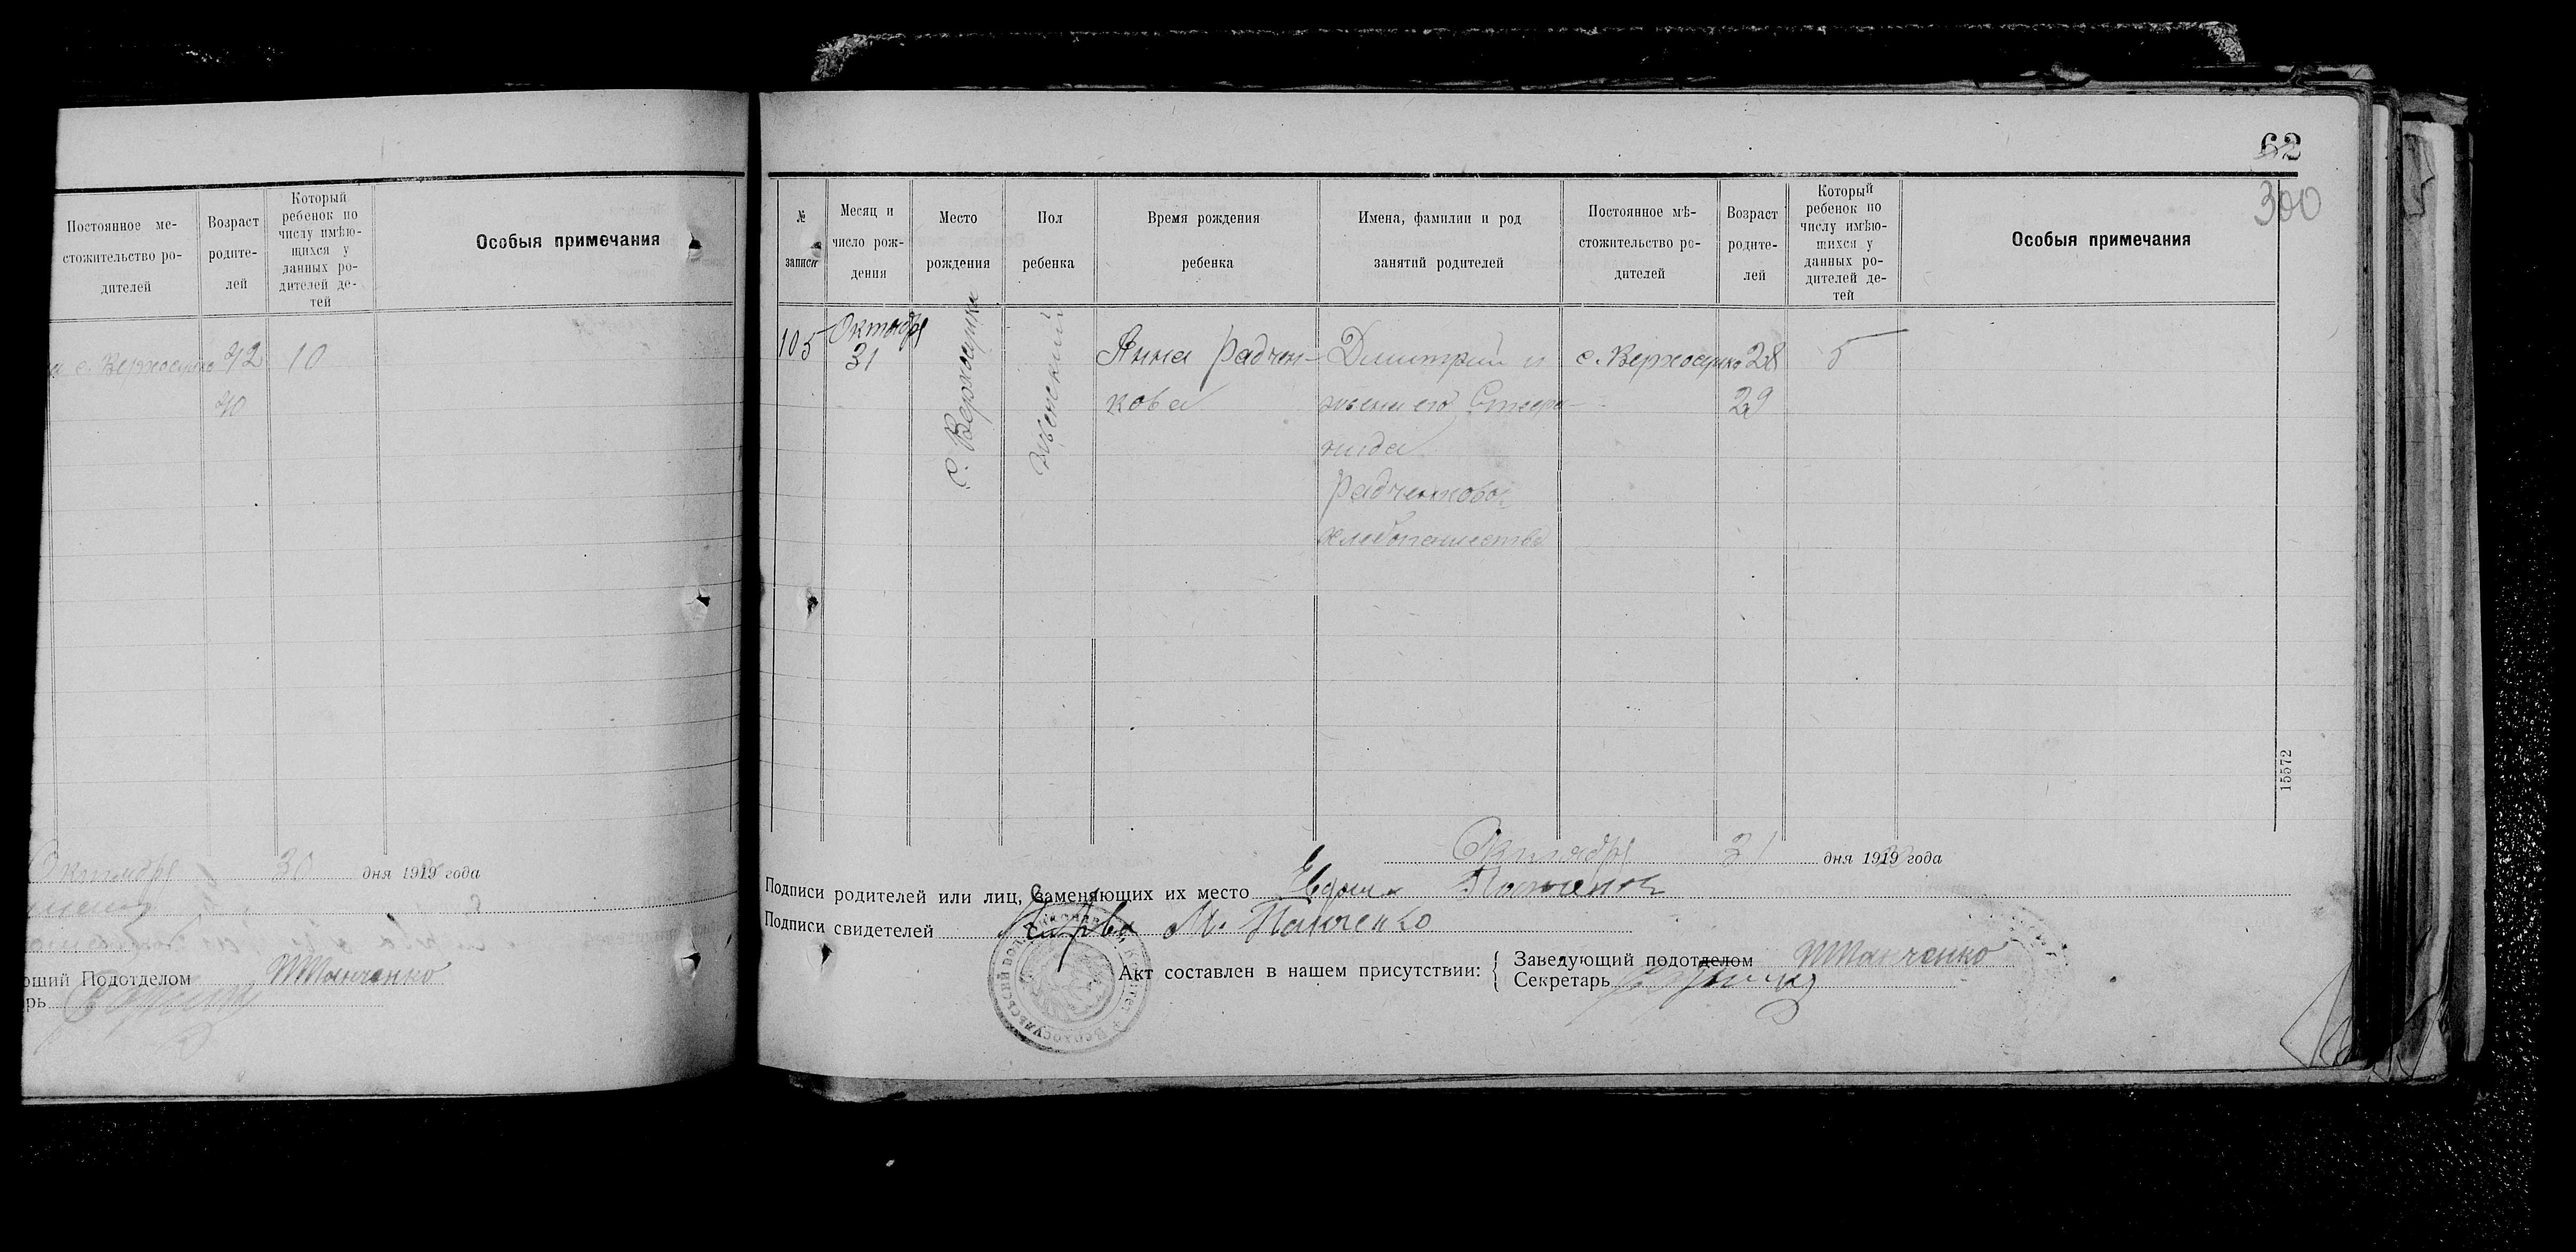 Постоянное ме-
стожительство ро-
дителей
Возраст
родите-
лей
Который
ребенок по
числу имѣю-
щихся у
данных ро-
дителей де-
тей
Особыя примечания
с. Верхосулка 42 10
40
Октября 30 дня 1919 года
ющий Подотделом Панченко
рь
62
300
№
записи
Месяц и
число рож-
дения
Место
рождения
Пол
ребенка
Время рождения
ребенка
Имена, фамилии и род
занятий родителей
Постоянное мѣ-
стожительство ро-
дителей
Возраст
родите-
лей
Который
ребенок по
числу имѣю-
щихся у
данных ро-
дителей де-
тей
Особыя примечания
105
Октября
31
с. Верхосулка
женский
Анна Радчен-
кова
Димитрий и
жена его Степа-
нида
Радченковы
хлебопашество
с. Верхосулка
28
29
5
15572
Октября 31 дня 1919 года
Подписи родителей или лиц, заменяющих их место
Подписи свидетелей М. Панченко
Акт составлен в нашем присутствии:
Заведующий подотделом Панченко
Секретарь